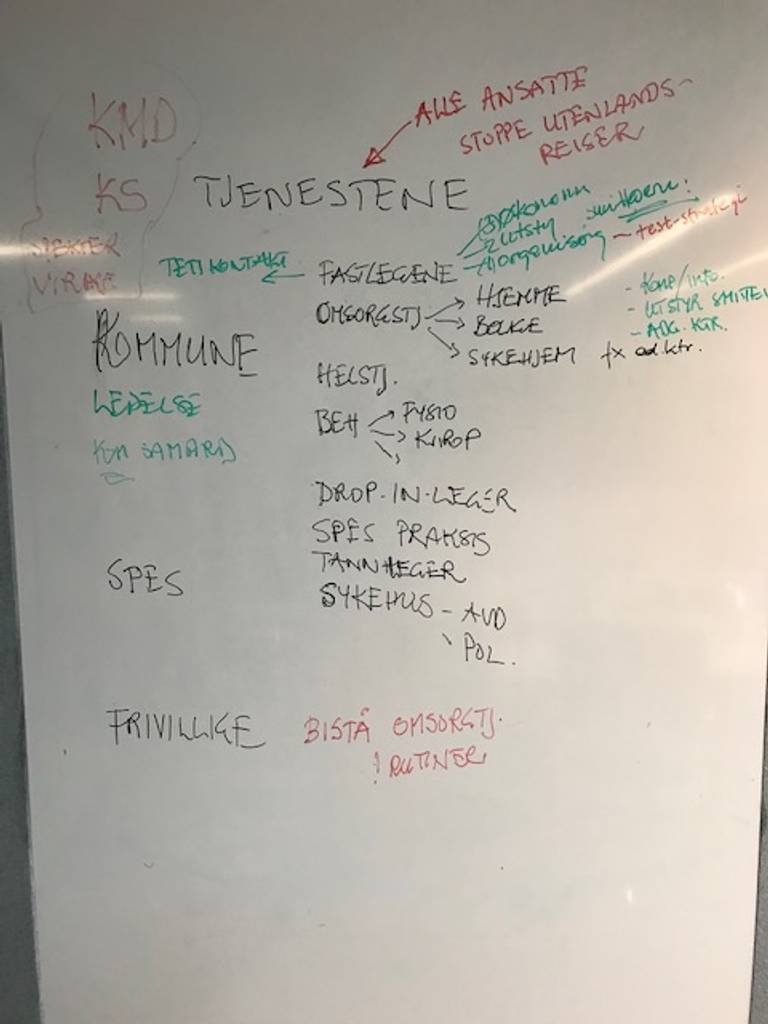 KMD
KS
SPEKTER
VIRKE
ALLE ANSATTE
STOPPE UTENLANDS-
REISER
TJENESTENE
TETT KONTAKT ← FASTLEGENE
3) Økonomi
2) Utstyr smittevern!
1) organisering - test-strategi
KOMMUNE
LEDELSE
KOM SAMARB
OMSORGSTJ → HJEMME
→ BOLIGE
→ SYKEHJEM fx ad.ktr.
- Komp/info.
- UTSTYR SMITTEV
- ADG. KTR.
HELSTJ.
BEH → FYSIO
→ KIROP
DROP-IN-LEGER
SPES PRAKSIS
TANNLEGER
SPES
SYKEHUS - AVD
\ POL.
FRIVILLIGE
BISTÅ OMSORGTJ.
! RUTINER